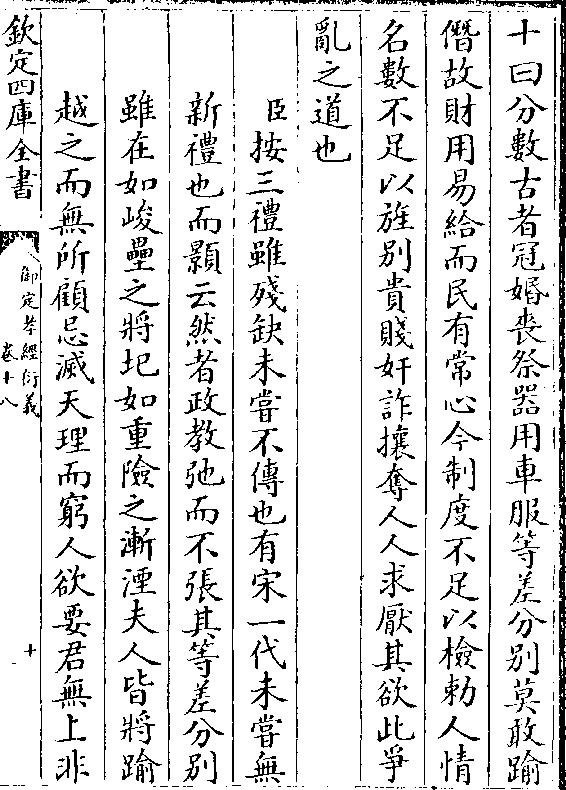 十曰分數古者冠婚喪祭器用車服等差分别莫敢踰
僭故財用易給而民有常心今制度不足以檢勅人情
名數不足以旌别貴賤奸詐攘奪人人求厭其欲此爭
亂之道也
臣按三禮雖殘缺未嘗不傳也有宋一代未嘗無
新禮也而顥云然者政教弛而不張其等差分别
雖在如峻壘之將圮如重險之漸湮夫人皆將踰
越之而無所顧忌滅天理而窮人欲要君無上非
欽定四庫全書
御定孝經衍義
卷十八
十